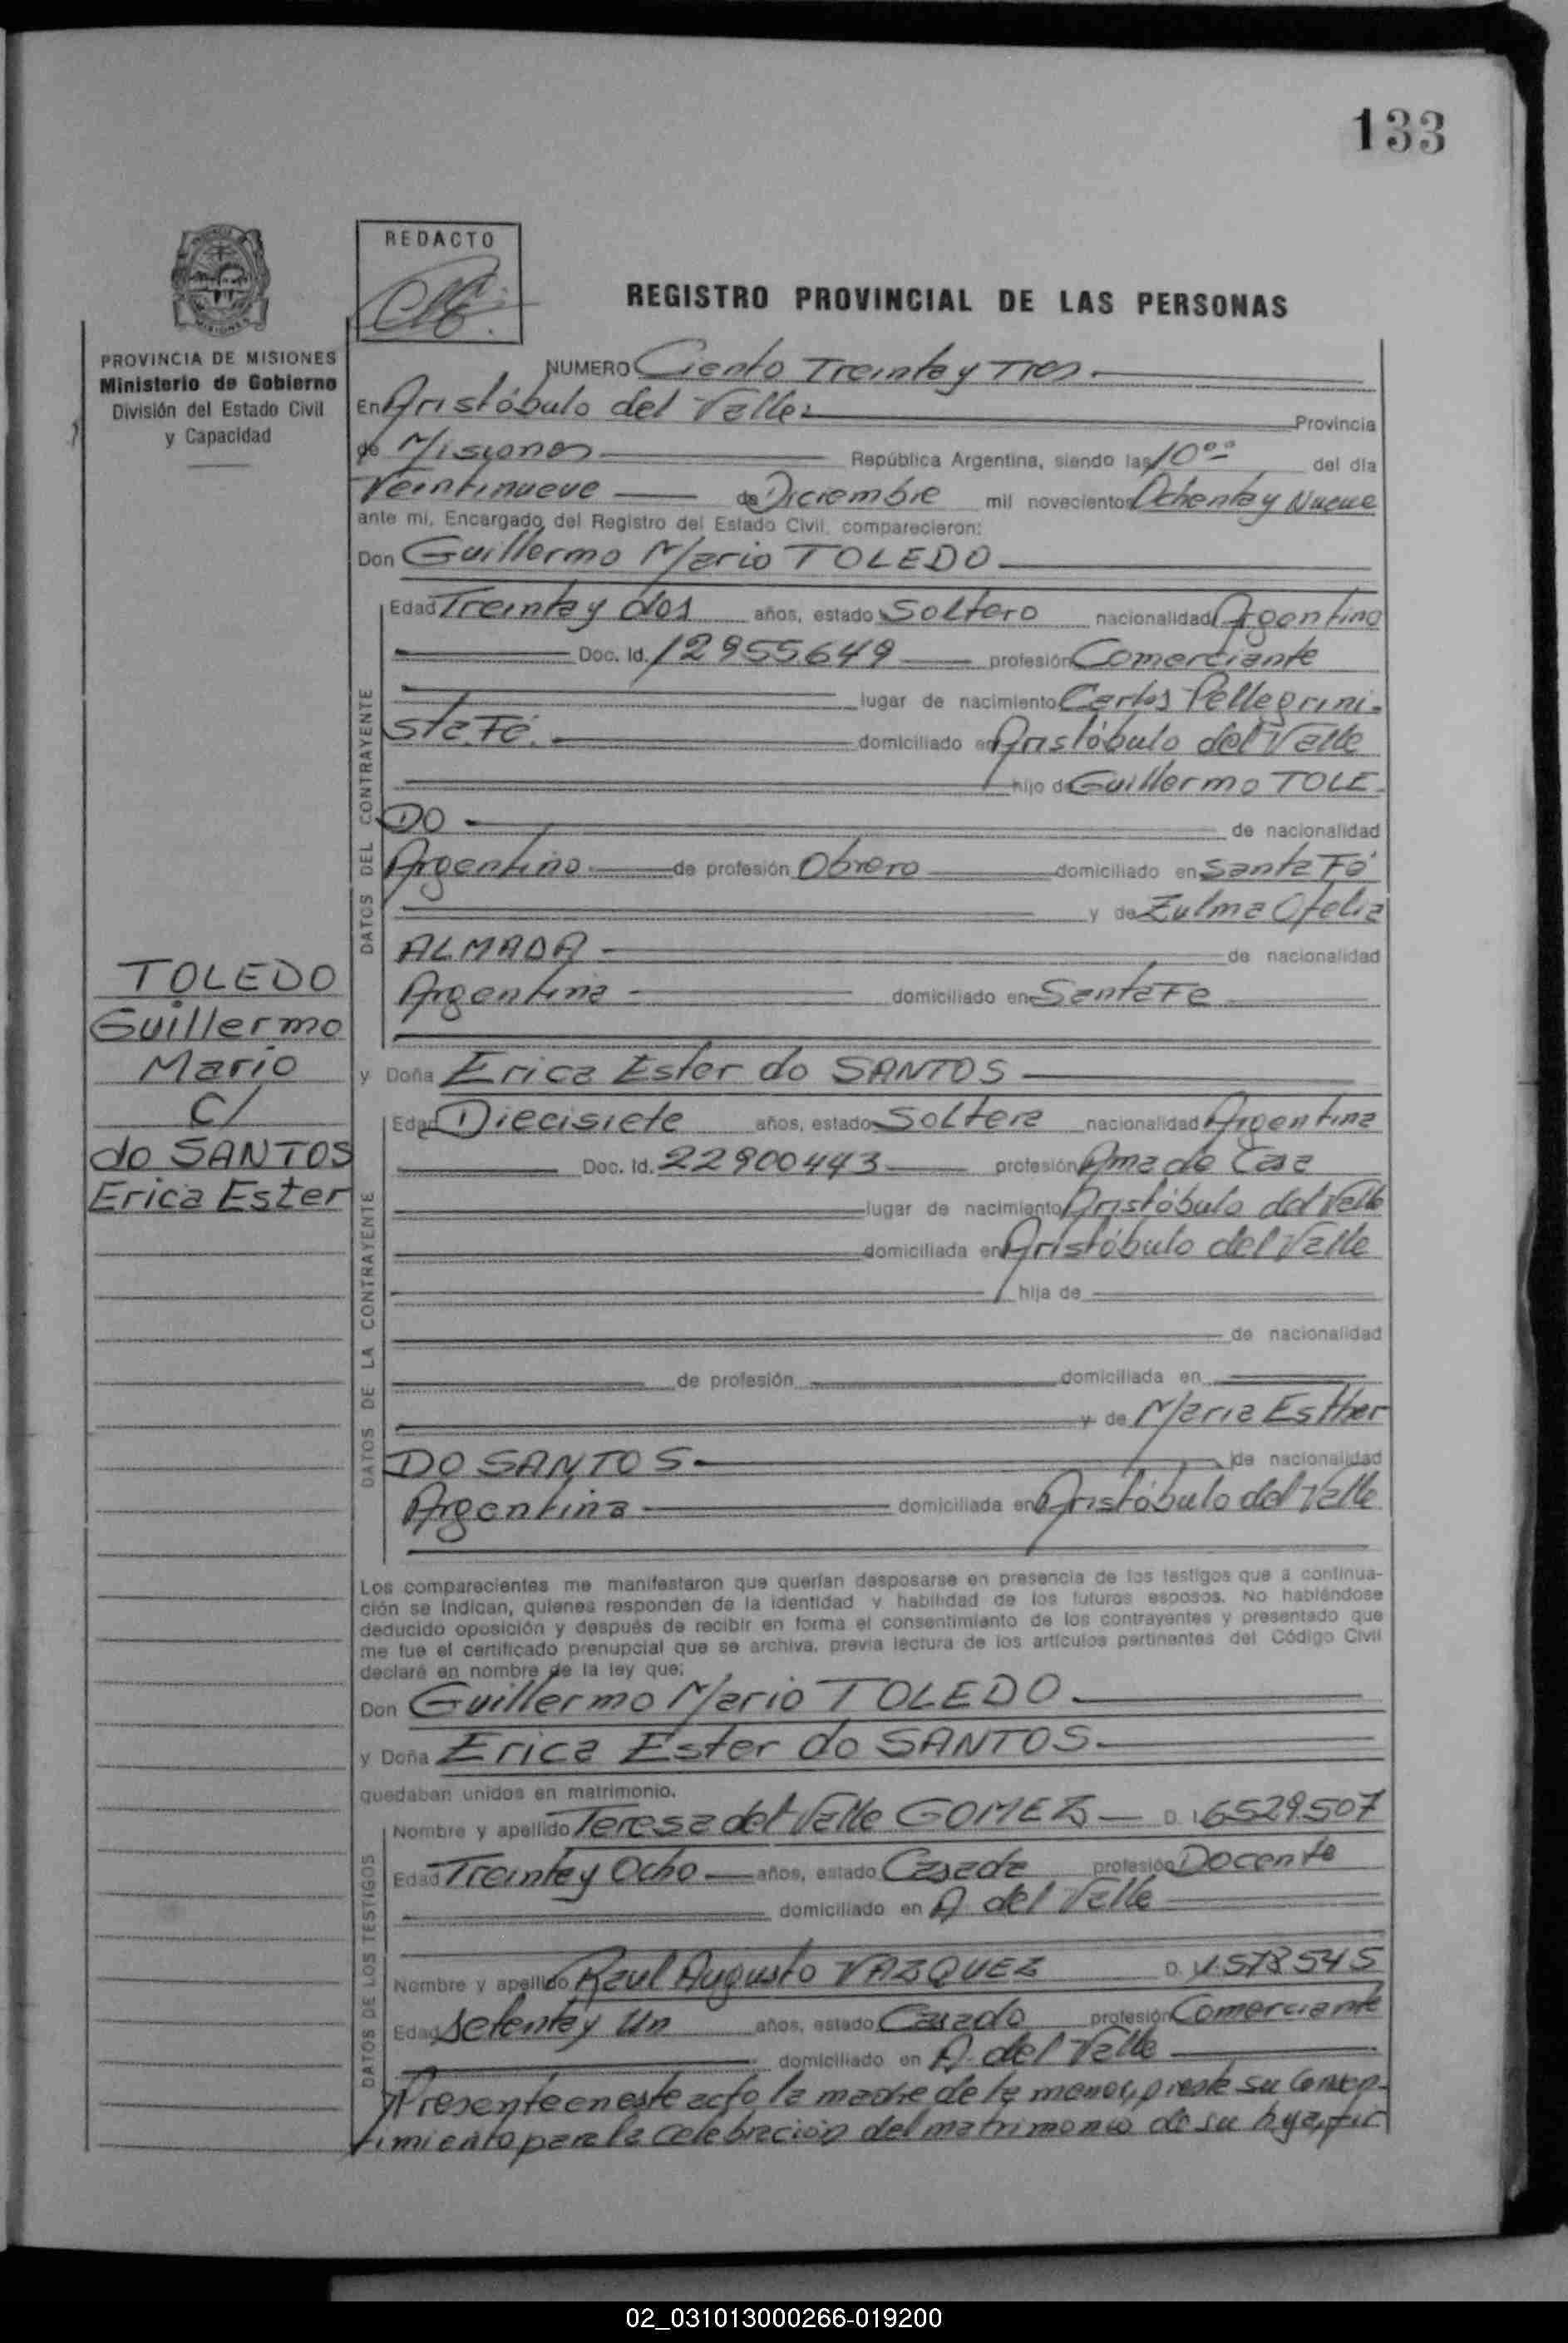 133
REDACTO
REGISTRO PROVINCIAL DE LAS PERSONAS
PROVINCIA DE MISIONES
Ministerio de Gobierno
División del Estado Civil
y Capacidad
NUMERO Ciento Treinta y Tres
En Aristóbulo del Valle Provincia
de Misiones República Argentina, siendo las 10°° del día
Veintinueve de Diciembre mil novecientos Ochenta y Nueve
ante mi, Encargado del Registro del Estado Civil, comparecieron:
Don Guillermo Mario TOLEDO
DATOS DEL CONTRAYENTE
Edad Treinta y dos años, estado Soltero nacionalidad Argentino
Doc. Id. 12955649 profesión Comerciante
lugar de nacimiento Carlos Pellegrini-
Sta. Fé. domiciliado en Aristóbulo del Valle
hijo de Guillermo TOLE-
DO de nacionalidad
Argentino de profesión Obrero domiciliado en Santa Fé
y de Zulma Ofelia
ALMADA de nacionalidad
Argentina domiciliado en Santa Fe
TOLEDO
Guillermo
Mario
C/
do SANTOS
Erica Ester
y Doña Erica Ester do SANTOS
DATOS DE LA CONTRAYENTE
Edad Diecisiete años, estado Soltera nacionalidad Argentina
Doc. Id. 22900443 profesión Ama de Casa
lugar de nacimiento Aristóbulo del Valle
domiciliada en Aristóbulo del Valle
hija de
de nacionalidad
de profesión domiciliada en
y de Maria Esther
DO SANTOS de nacionalidad
Argentina domiciliada en Aristóbulo del Valle
Los comparecientes me manifestaron que querían desposarse en presencia de los testigos que a continua-
ción se indican, quienes responden de la identidad y habilidad de los futuros esposos. No habiéndose
deducido oposición y después de recibir en forma el consentimiento de los contrayentes y presentado que
me fue el certificado prenupcial que se archiva, previa lectura de los artículos pertinentes del Código Civil
declaré en nombre de la ley que:
Don Guillermo Mario TOLEDO
y Doña Erica Ester do SANTOS
quedaban unidos en matrimonio.
DATOS DE LOS TESTIGOS
Nombre y apellido Teresa del Valle GOMEZ D. I. 6529.507
Edad Treinta y Ocho años, estado Casada profesión Docente
domiciliado en A. del Valle
Nombre y apellido Raul Augusto VAZQUEZ D. 1.578.545
Edad Setenta y Un años, estado Casado profesión Comerciante
domiciliado en A. del Valle
Presente en este acto la madre de la menor, preste su Consen-
timiento para la celebración del matrimonio de su hija,
02_031013000266-019200